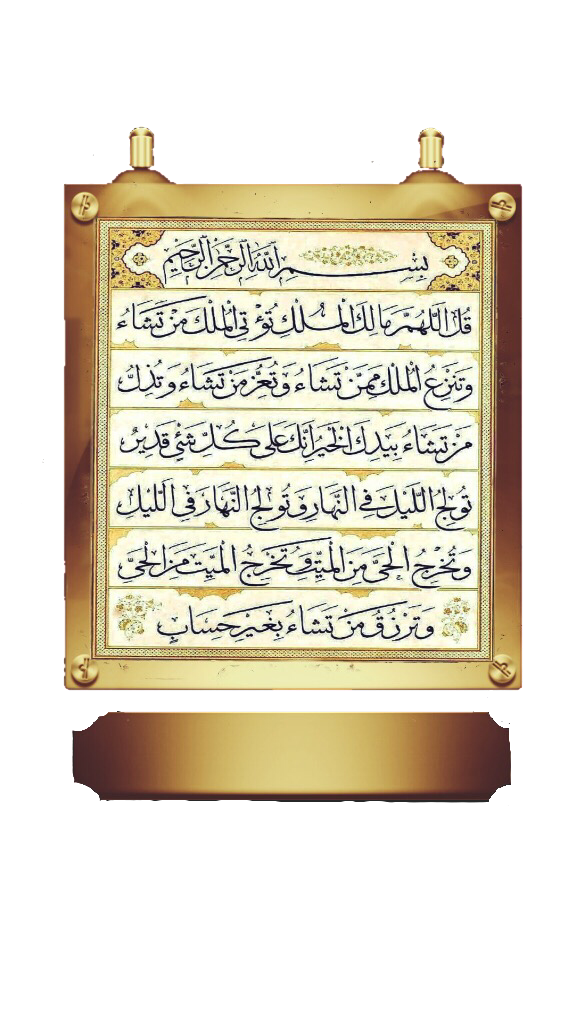 بِسْمِ اللهِ الرَّحْمٰنِ الرَّحِيْمِ
قُلِ اللَّهُمَّ مَالِكَ الْمُلْكِ تُؤْتِی الْمُلْكَ مَنْ تَشَاءُ
وَتَنْزِعُ الْمُلْكَ مِمَّنْ تَشَاءُ وَتُعِزُّ مَنْ تَشَاءُ وَتُذِلُّ
مَنْ تَشَاءُ بِيَدِكَ الْخَيْرُ اِنَّكَ عَلٰى كُلِّ شَئٍ قَدِيْرٌ
تُولِجُ اللَّيْلَ فِی النَّهَارِ وَتُولِجُ النَّهَارَ فِی اللَّيْلِ
وَتُخْرِجُ الْحَیَّ مِنَ الْمَيِّتِ وَتُخْرِجُ الْمَيِّتَ مِنَ الْحَیِّ
وَتَرْزُقُ مَنْ تَشَاءُ بِغَيْرِ حِسَابٍ